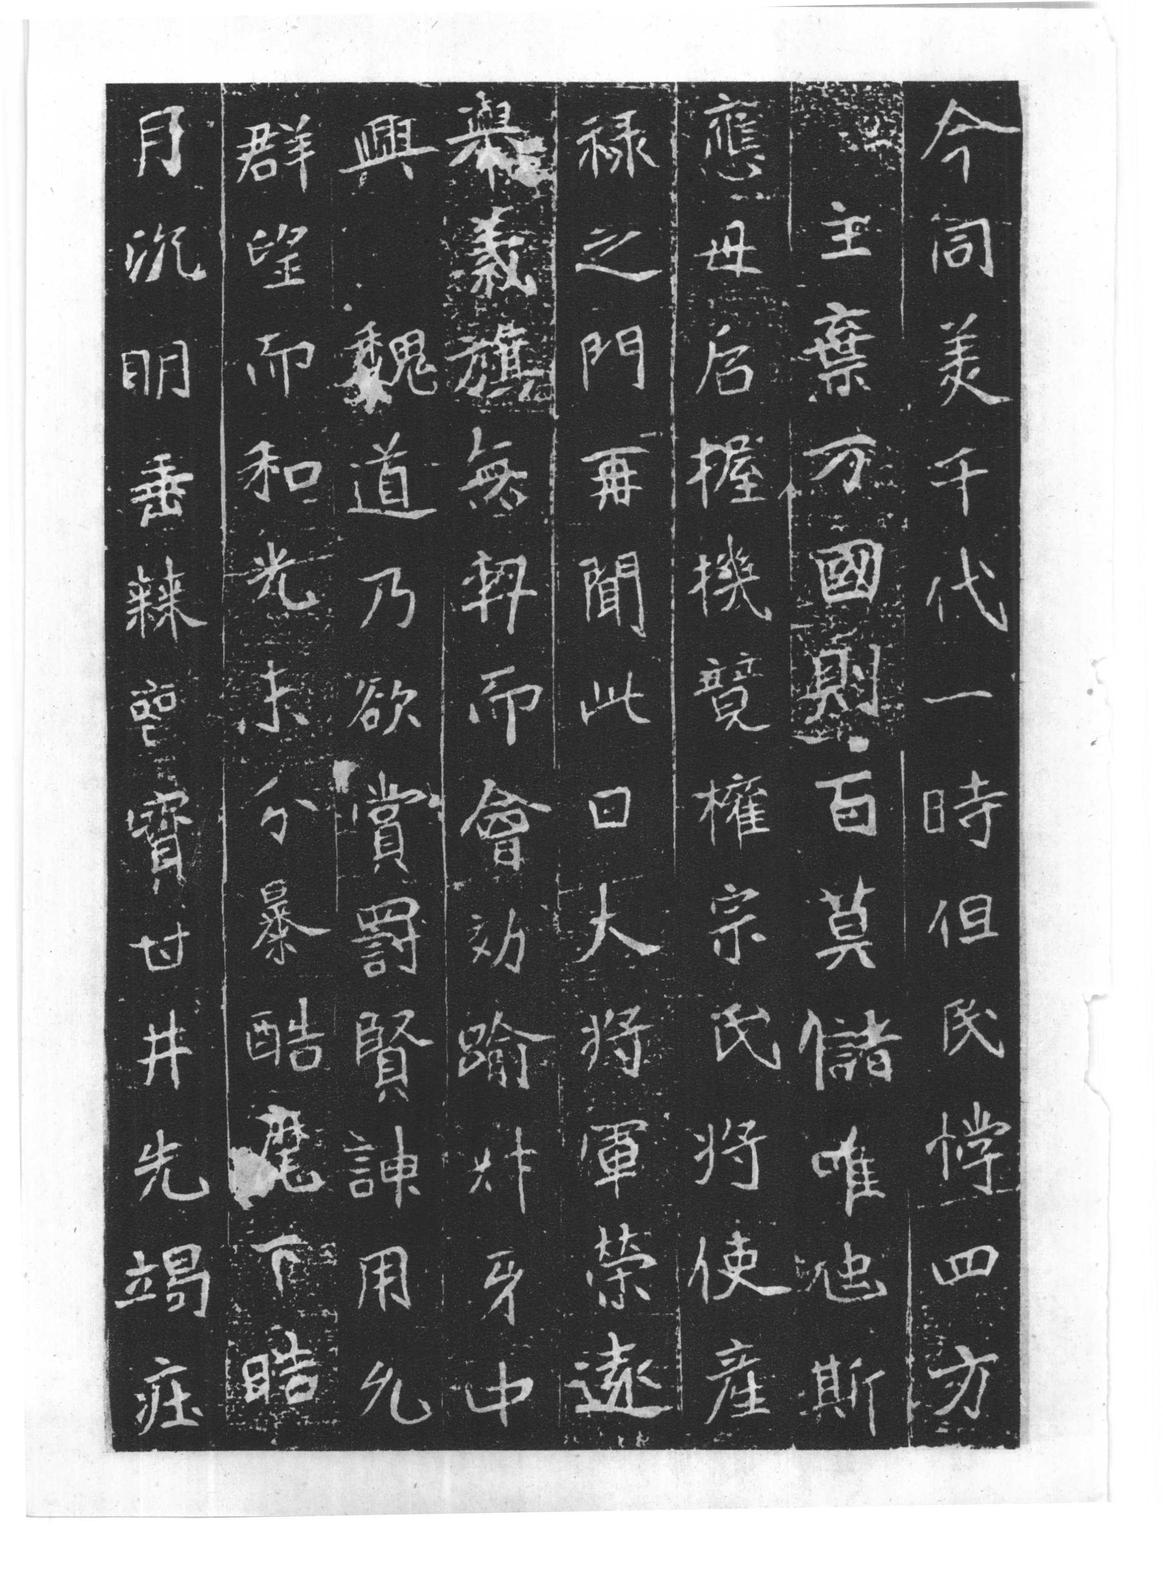 今同美千代一時但民悖四方
主棄万國則百莫儲唯迆斯
應母后握機競權宗民将使產
禄之門再聞此日大将軍榮遠
舉義旗無契而會効踰爿牙中
興魏道乃欲賞罰賢諌用允
群望而和光未分暴酷麾下晧
月沉明垂棘寶甘井先竭疰